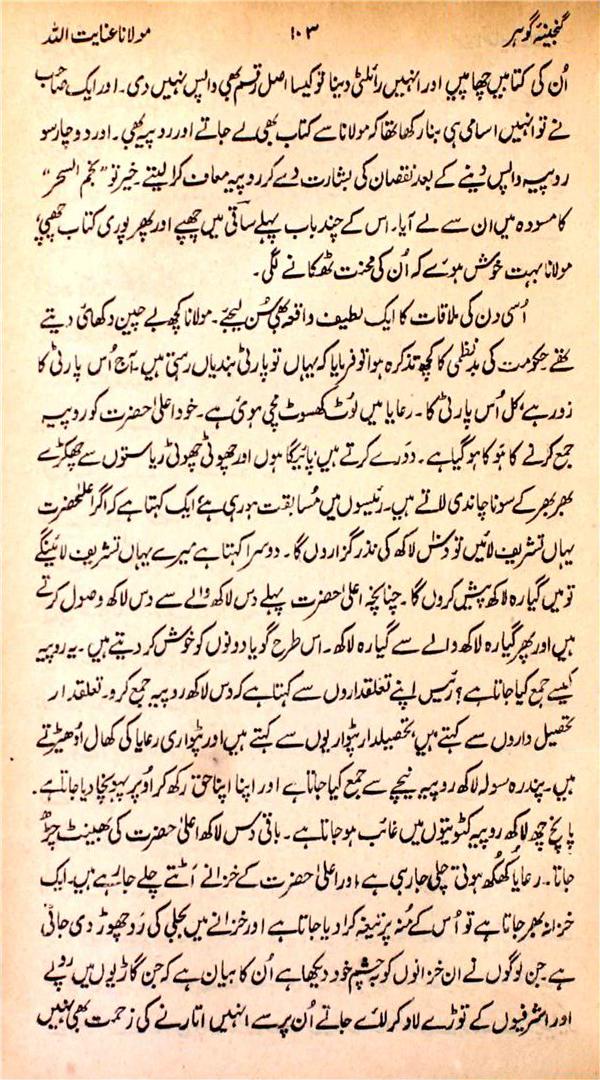 گنجینۂ گوہر ۱۰۳ مولانا عنایت اللہ
اُن کی کتابیں چھاپیں اور انہیں رائلٹی دینا تو کیسا اصل رقم بھی واپس نہیں دی۔ اور ایک صاحب
نے تو انہیں اسامی ہی بنا رکھا تھا کہ مولانا سے کتاب بھی لے جاتے اور روپیہ بھی۔ اور دو چار سو
روپیہ واپس دینے کے بعد نقصان کی بشارت دے کر روپیہ معاف کرا لیتے۔ خیر تو "نجم السحر"
کا مسودہ میں ان سے لے آیا۔ اس کے چند باب پہلے ساقی میں چھپے اور پھر پوری کتاب چھپی،
مولانا بہت خوش ہوئے کہ اُن کی محنت ٹھکانے لگی۔
اُسی دن کی ملاقات کا ایک لطیف واقعہ بھی سُن لیجیے۔ مولانا کچھ بے چین دکھائی دیتے
تھے حکومت کی بدنظمی کا کچھ تذکرہ ہوا تو فرمایا کہ یہاں تو پارٹی بندیاں رہتی ہیں۔ آج اُس پارٹی کا
زور ہے، کل اُس پارٹی کا۔ رعایا میں لُوٹ کھسوٹ مچی ہوئی ہے۔ خود اعلیٰ حضرت کو روپیہ
جمع کرنے کا ہَوکا ہو گیا ہے۔ دَورے کرتے ہیں، پائیگاہوں اور چھوٹی چھوٹی ریاستوں سے چھکڑے
بھر بھر کے سونا چاندی لاتے ہیں۔ رئیسوں میں مُسابقت ہو رہی ہے، ایک کہتا ہے کہ اگر اعلیٰحضرت
یہاں تشریف لائیں تو دس لاکھ کی نذر گزاروں گا۔ دوسرا کہتا ہے میرے یہاں تشریف لائینگے
تو میں گیارہ لاکھ پیش کروں گا۔ چنانچہ اعلیٰ حضرت پہلے دس لاکھ والے سے دس لاکھ وصول کرتے
ہیں اور پھر گیارہ لاکھ والے سے گیارہ لاکھ۔ اس طرح گویا دونوں کو خوش کر دیتے ہیں۔ یہ روپیہ
کیسے جمع کیا جاتا ہے؟ رئیس اپنے تعلقداروں سے کہتا ہے کہ دس لاکھ روپیہ جمع کرو۔ تعلقدار
تحصیل داروں سے کہتے ہیں، تحصیلدار پٹواریوں سے کہتے ہیں اور پٹواری رعایا کی کھال اُدھیڑتے
ہیں۔ پندرہ سولہ لاکھ روپیہ نیچے سے جمع کیا جاتا ہے اور اپنا اپنا حق رکھ کر اُوپر پہونچا دیا جاتا ہے۔
پانچ چھ لاکھ روپیہ کٹوتیوں میں غائب ہو جاتا ہے۔ باقی دس لاکھ اعلیٰ حضرت کی بھینٹ چڑھ
جاتا۔ رعایا کھُکھ ہوتی چلی جا رہی ہے، اور اعلیٰ حضرت کے خزانے اَٹتے چلے جا رہے ہیں۔ ایک
خزانہ بھر جاتا ہے تو اُس کے مُنہ پر تیغہ کرا دیا جاتا ہے اور خزانے میں بجلی کی رَو چھوڑ دی جاتی
ہے جن لوگوں نے ان خزانوں کو بچشمِ خود دیکھا ہے اُن کا بیان ہے کہ جن گاڑیوں میں روپے
اور اشرفیوں کے توڑے لاد کر لائے جاتے اُن پر سے انہیں اتارنے کی زحمت بھی نہیں